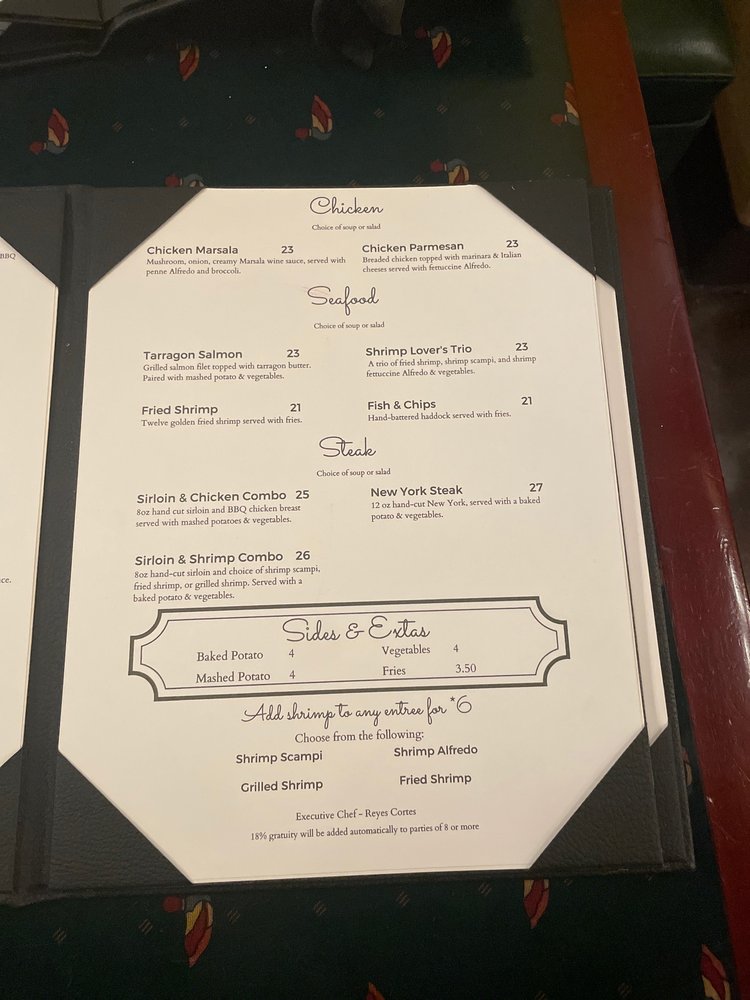 BBQ
ce.
Chicken
Choice of soup or salad
Chicken Marsala 23
Mushroom, onion, creamy Marsala wine sauce, served with
penne Alfredo and broccoli.
Chicken Parmesan 23
Breaded chicken topped with marinara & Italian
cheeses served with fettuccine Alfredo.
Seafood
Choice of soup or salad
Tarragon Salmon 23
Grilled salmon filet topped with tarragon butter.
Paired with mashed potato & vegetables.
Shrimp Lover's Trio 23
A trio of fried shrimp, shrimp scampi, and shrimp
fettuccine Alfredo & vegetables.
Fried Shrimp 21
Twelve golden fried shrimp served with fries.
Fish & Chips 21
Hand-battered haddock served with fries.
Steak
Choice of soup or salad
Sirloin & Chicken Combo 25
8oz hand cut sirloin and BBQ chicken breast
served with mashed potatoes & vegetables.
New York Steak 27
12 oz hand-cut New York, served with a baked
potato & vegetables.
Sirloin & Shrimp Combo 26
8oz hand-cut sirloin and choice of shrimp scampi,
fried shrimp, or grilled shrimp. Served with a
baked potato & vegetables.
Sides & Extas
Baked Potato 4
Vegetables 4
Mashed Potato 4
Fries 3.50
Add shrimp to any entree for *6
Choose from the following:
Shrimp Scampi
Shrimp Alfredo
Grilled Shrimp
Fried Shrimp
Executive Chef - Reyes Cortes
18% gratuity will be added automatically to parties of 8 or more